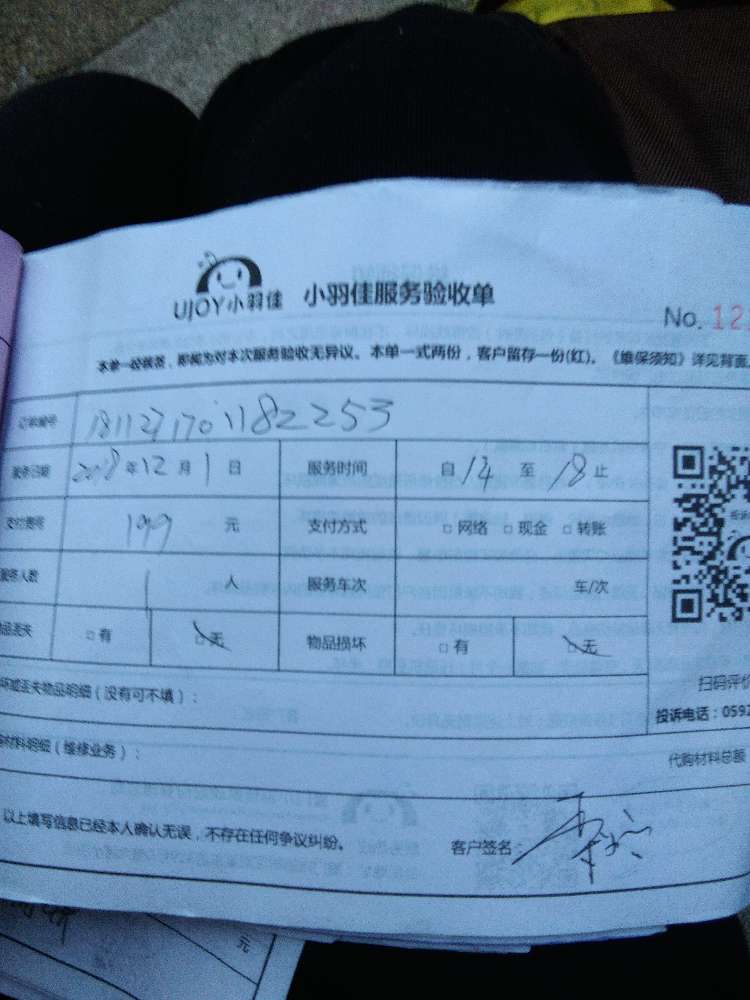 UJOY小羽佳 小羽佳服务验收单
No. 12
本单一经核签，即视为对本次服务验收无异议。本单一式两份，客户留存一份(红)。《维保须知》详见背面
订单编号 1811271701182253
服务日期 2018年12月1日 服务时间 自14至18止
支付费用 199元 支付方式 □网络 □现金 □转账
服务人数 1人 服务车次 车/次
品丢失 □有 □无 物品损坏 □有 □无
坏或丢失物品明细（没有可不填）：
扫码评价
投诉电话：0592
材料明细（维修业务）：
代购材料总额
以上填写信息已经本人确认无误，不存在任何争议纠纷。 客户签名：
元